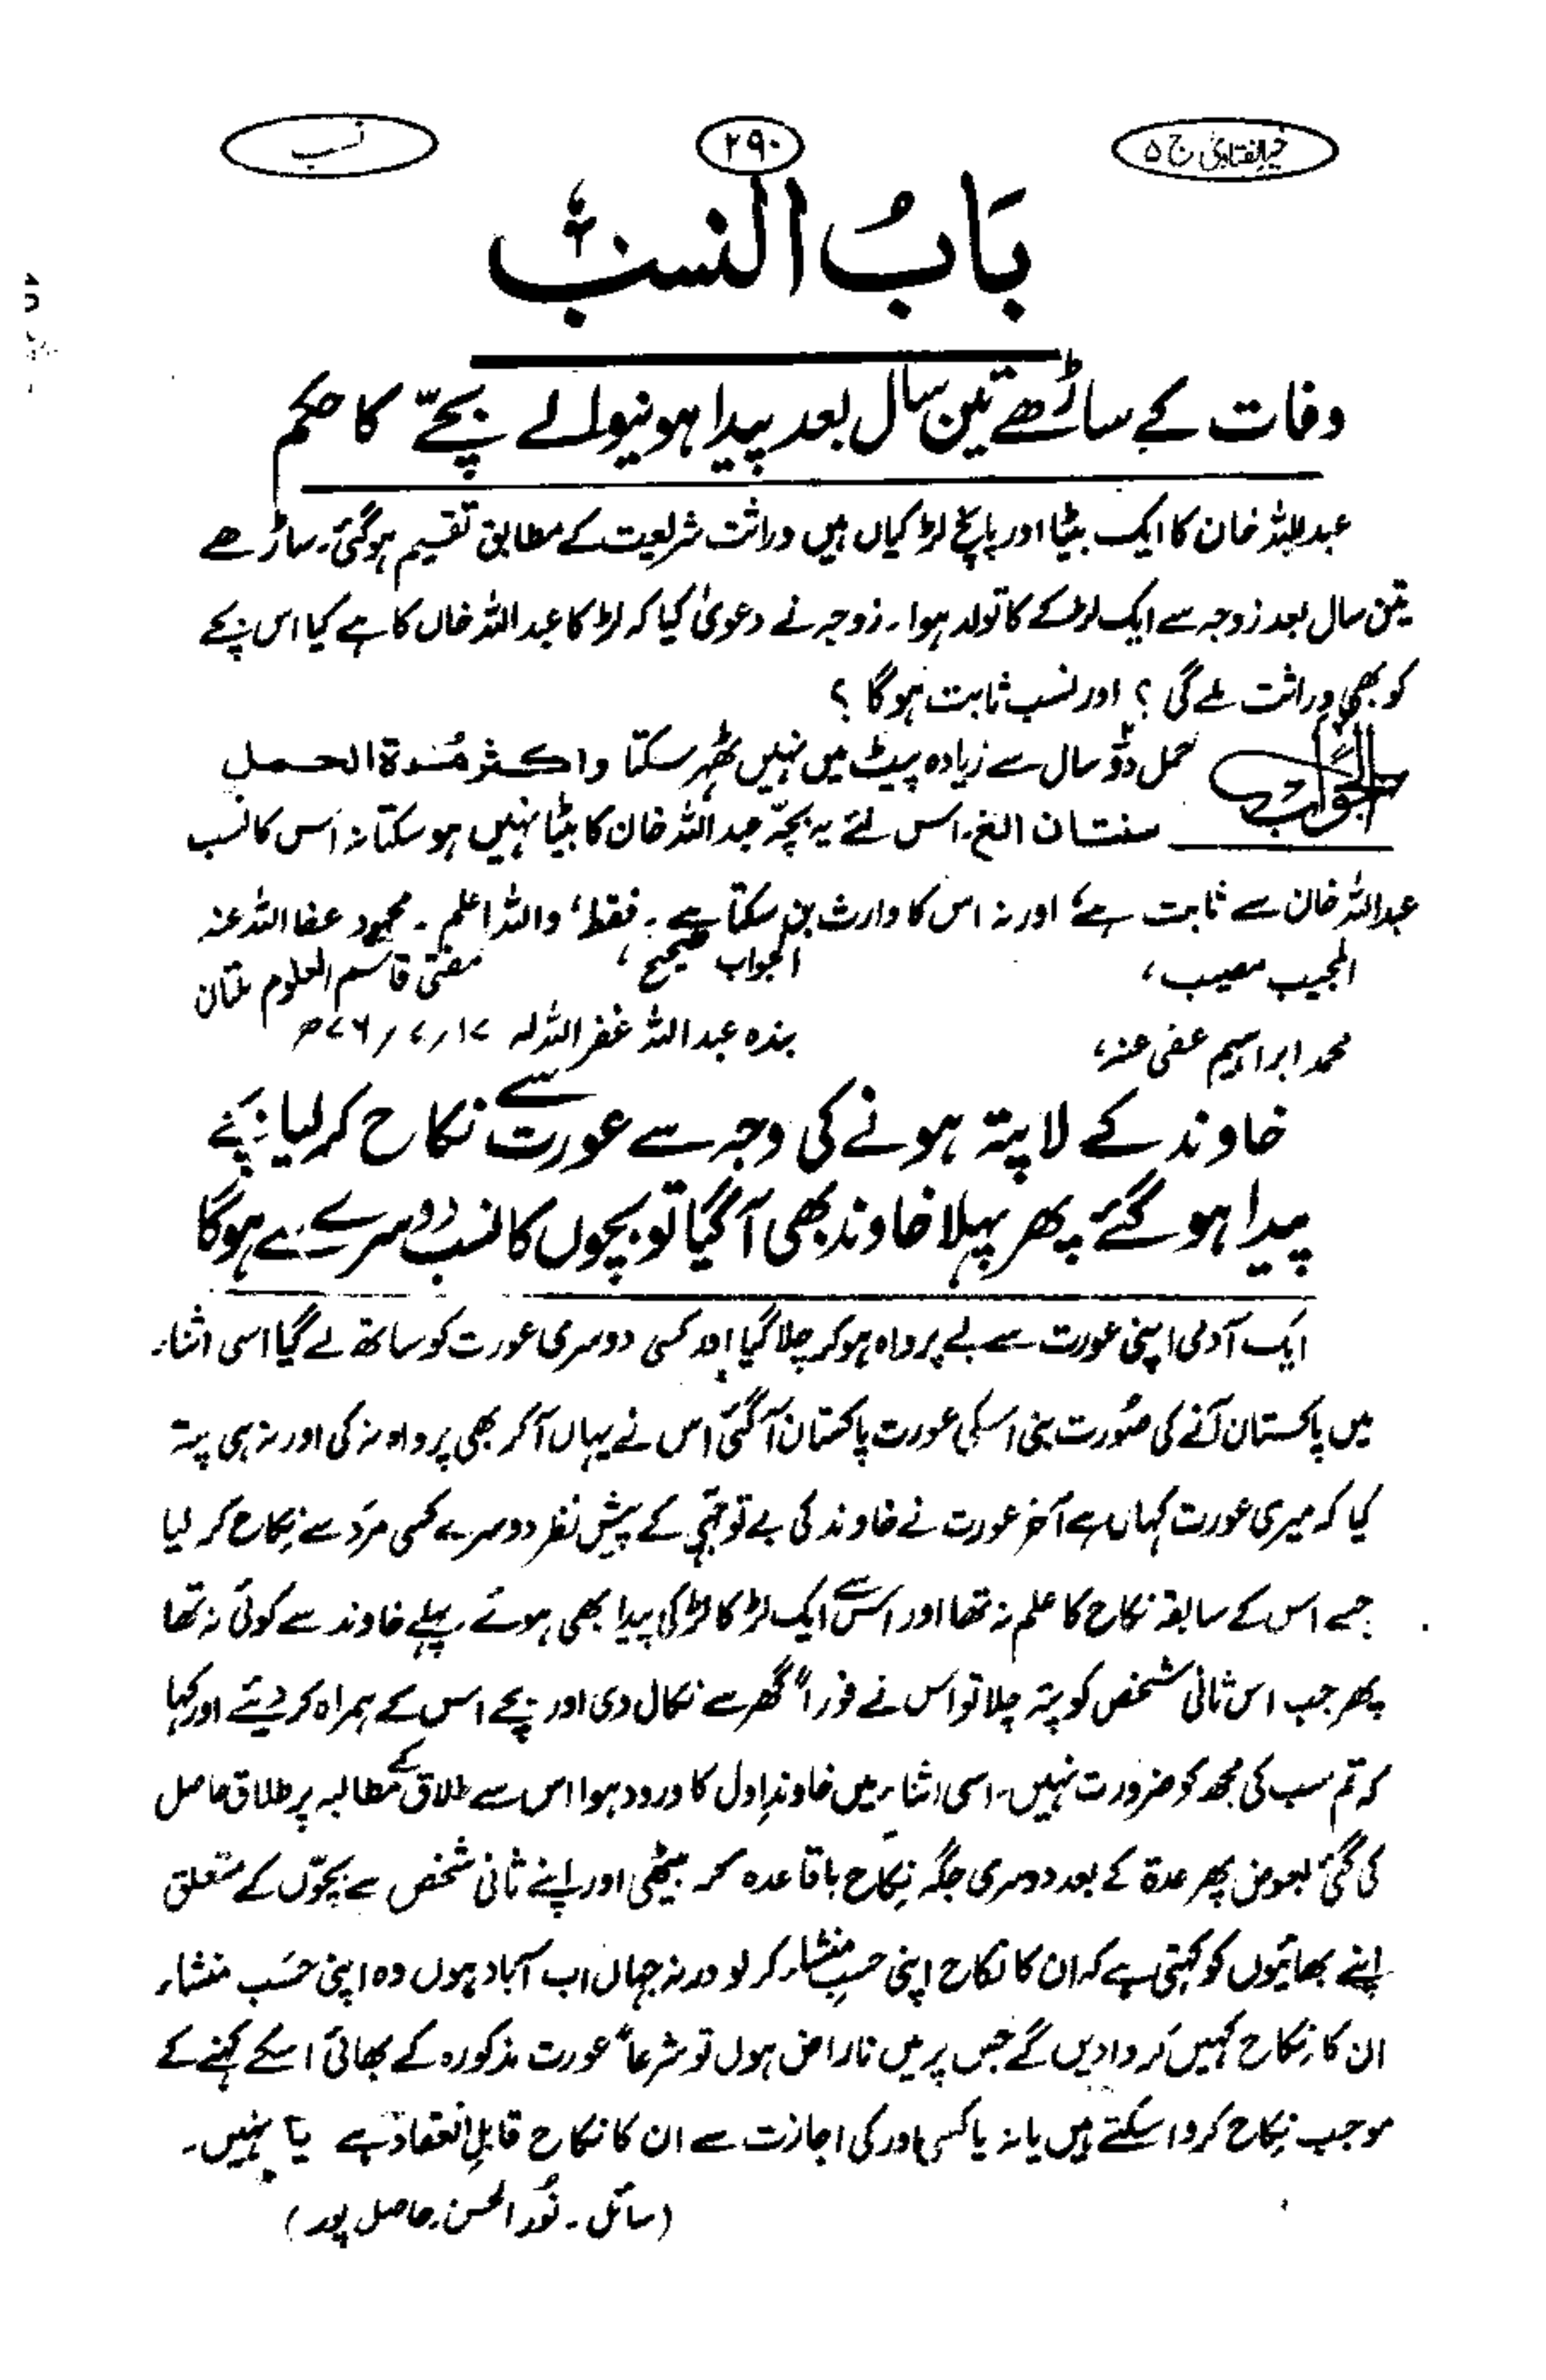 خیر الفتاویٰ ج ۵
۲۹۰
نسب
بَابُ النسب
وفات کے ساڑھے تین سال بعد پیدا ہونیوالے بچّے کا حکم
عبداللہ خان کا ایک بیٹا اور پانچ لڑکیاں ہیں وراثت شریعت کے مطابق تقسیم ہوگئی۔ ساڑھے
تین سال بعد زوجہ سے ایک لڑکے کا تولد ہوا۔ زوجہ نے دعویٰ کیا کہ لڑکا عبداللہ خاں کا ہے کیا اس بچے
کو بھی وراثت ملے گی؟ اور نسب ثابت ہوگا؟
الجواب حمل دوّ سال سے زیادہ پیٹ میں نہیں ٹھہر سکتا واکثر مُدۃ الحمل
سنتان الخ۔ اس لئے یہ بچّہ عبداللہ خان کا بیٹا نہیں ہو سکتا نہ اس کا نسب
عبداللہ خان سے ثابت ہے، اور نہ اس کا وارث بن سکتا ہے۔ فقط، واللہ اعلم۔ محمود عفا اللہ عنہ
المجیب مصیب، الجواب صحیح، مفتی قاسم العلوم ملتان
محمد ابراہیم عفی عنہ، بندہ عبداللہ غفر اللہ لہ ۱۷؍۷؍۷۶ھ
خاوند کے لاپتہ ہونے کی وجہ سے عورت سے نکاح کرلیا بچے
پیدا ہو گئے پھر پہلا خاوند بھی آگیا تو بچوں کا نسب دوسرے سے ہوگا
ایک آدمی اپنی عورت سے بے پرواہ ہو کر چلا گیا اور کسی دوسری عورت کو ساتھ لے گیا اسی اثناء
میں پاکستان آنے کی صُورت بنی اسکی عورت پاکستان آگئی اس نے یہاں آکر بھی پرواہ نہ کی اور نہ ہی پتہ
کیا کہ میری عورت کہاں ہے آخر عورت نے خاوند کی بے توجہی کے پیش نظر دوسرے کسی مرد سے نکاح کر لیا
جسے اس کے سابقہ نکاح کا علم نہ تھا اور اس سے ایک لڑکا لڑکی پیدا بھی ہوئے۔ پہلے خاوند سے کوئی نہ تھا
پھر جب اس ثانی شخص کو پتہ چلا تو اس نے فوراً گھر سے نکال دی اور بچے اس کے ہمراہ کر دیئے اور کہا
کہ تم سب کی مجھ کو ضرورت نہیں۔ اسی اثناء میں خاوندِ اول کا ورود ہوا اس سے طلاق کے مطالبہ پر طلاق حاصل
کی گئی بعوض پھر عدۃ کے بعد دوسری جگہ نِکاح باقاعدہ کر بیٹھی اور اپنے ثانی شخص سے بچوّں کے متعلق
اپنے بھائیوں کو کہتی ہے کہ ان کا نکاح اپنی حسبِ منشاء کر لو ورنہ جہاں اب آباد ہوں وہ اپنی حسَب منشاء
ان کا نِکاح کہیں کروا دیں گے جس پر میں ناراض ہوں تو شرعاً عورت مذکورہ کے بھائی اسکے کہنے کے
موجب نِکاح کروا سکتے ہیں یا نہ یا کسی اور کی اجازت سے ان کا نکاح قابلِ انعقاد ہے یا نہیں۔
(سائل۔ نُور الحسن۔ حاصل پور)